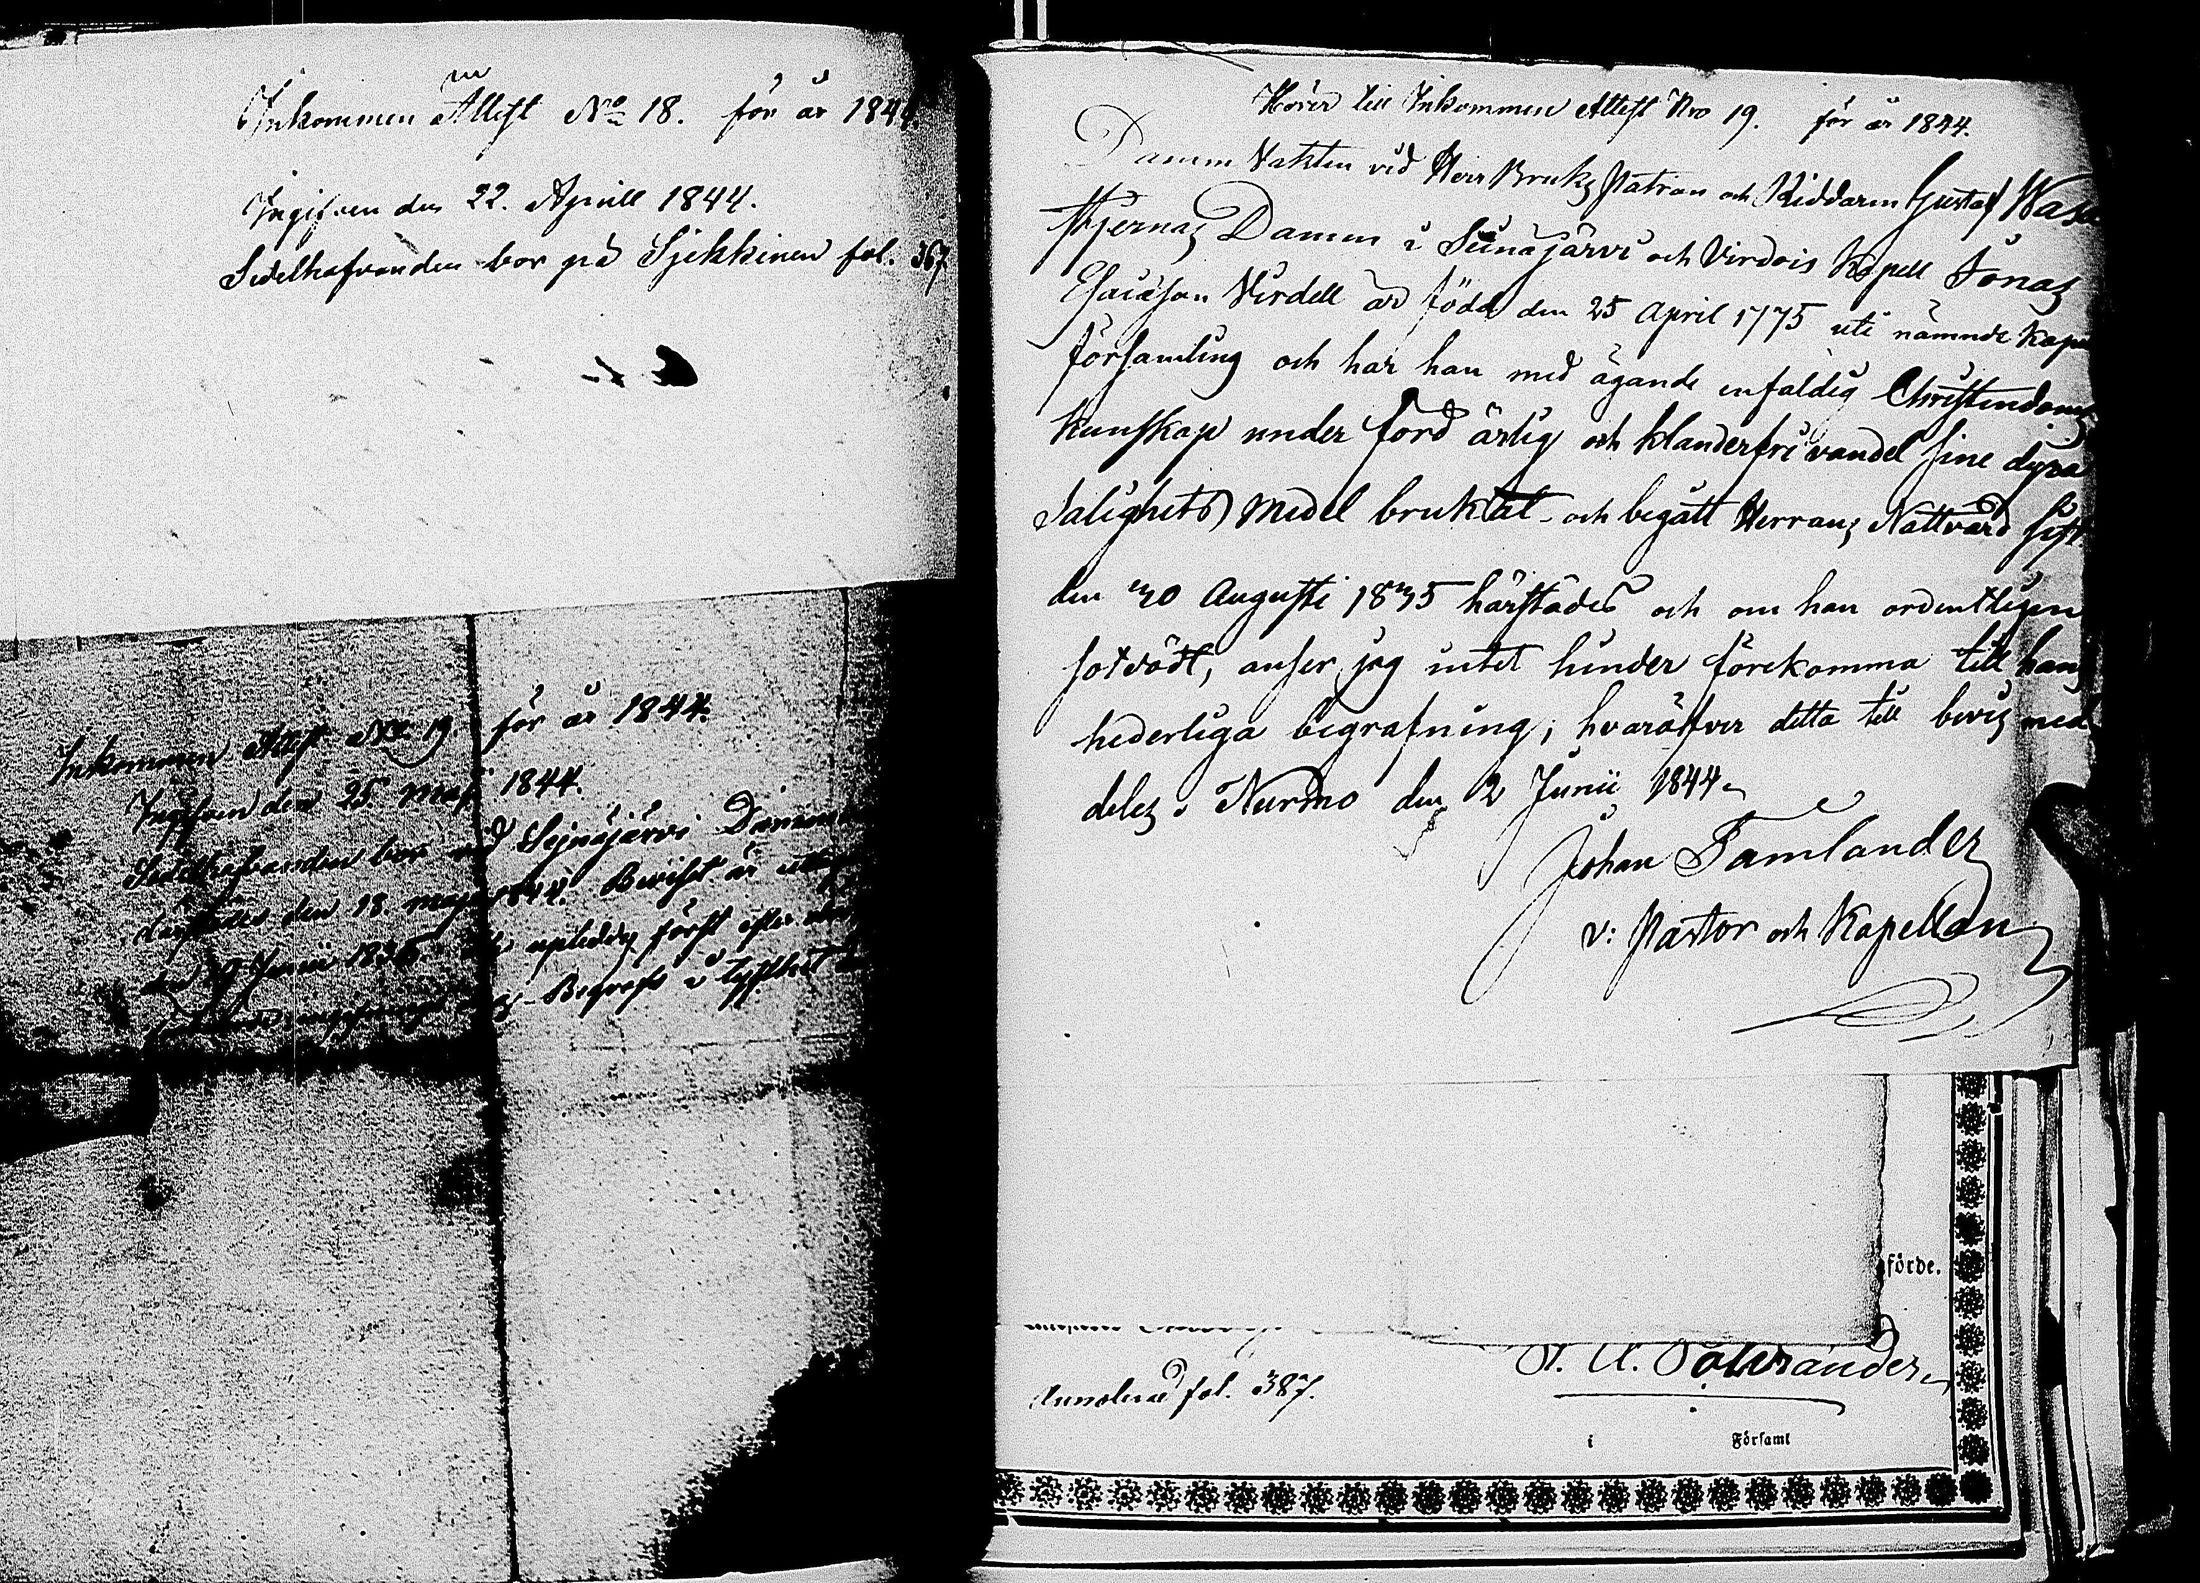 Inkommen Attest No 18. för år 1844.
Ingifven den 22. Aprill 1844.
Sedelhafvanden bor på Sjekkinen fol. 367.
Inkommen Attest No 19. för år 1844.
Ingifven den 25. maji 1844.
Sedelhafvanden bor vid Sejnäjärvi Damm
den 18. maji 1844. Beviset är
den Junii 1835. först efter
Begrofs i tysthet
Hörer till Inkommen Attest Nro 19. för år 1844.
Damm Vakten vid Herr Bruks Patron och Riddaren Gustaf Wasa
stjernas Damm i Seinäjärvi och Virdois Kapell Jonas
Esaiason Virdell är född den 25 April 1775 uti nämnde Kapell
församling och har han med ägande enfaldig Christendoms
kunskap under förd ärlig och klanderfri vandel sine dyra
Salighets medel bruktat och begått Herrans Nattvard sist
den 30 Augusti 1835 härstädes och om han ordentligen
sotdödt, anser jag intet hinder förekomma till hans
hederliga begrafning; hvaröfver detta till bevis med
deles. Nurmo den 2 Junii 1844.
Johan Tamlander
v: Pastor och Kapellan
förde.
fol. 387.
i Församl